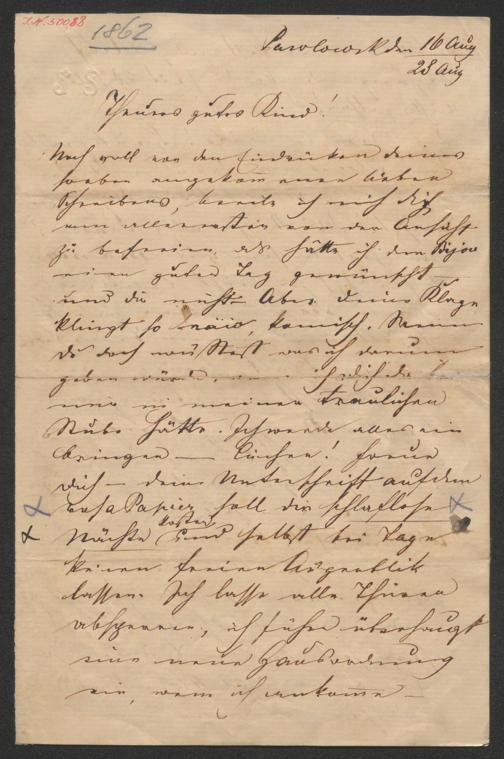 I.N. 50088
1862
Pawlowsk den 16 Aug
28 Aug
Theures gutes Kind!
Noch voll von den Eindrücken deines
soeben angekommenen lieben
Schreibens, beeile ich mich dich
vor allererst von der Ansicht
zu befreien, als hätte ich dem Bijou
einen guten Tag gewünscht
und dir nicht. Aber deine Klage
klingt so naiv, komisch. Wenn
du doch wüsstest was ich darum
geben würde, ich dich die
nur in meiner traulichen
Stube hätte. Ich werde alles ein
bringen — freue
dich — deine Unterschrift auf dem
rosa Papier soll dir schlaflose
Nächte kosten und selbst bei Tage
keinen freien Augenblick
lassen. Ich lasse alle Thüren
absperren, ich führe überhaupt
eine neue Hausordnung
ein, wenn ich ankomme —